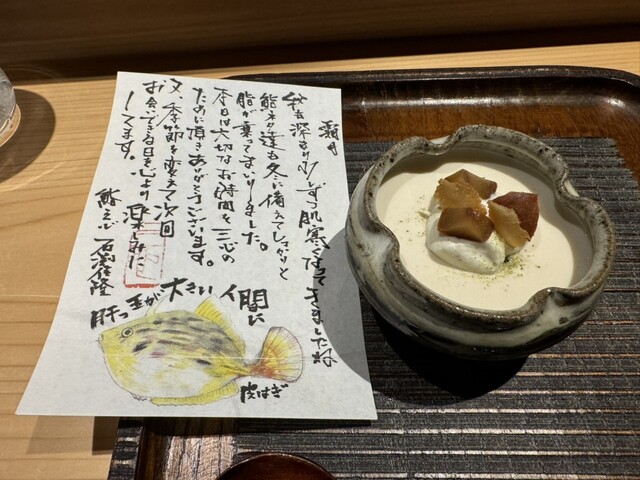 霜月
秋も深まり少しずつ肌寒くなってきましたね
鮨ネタ達も冬に備えてしっかりと
脂が乗ってまいりました。
本日は大切なお時間を三心の
ために頂きありがとうございます。
又、季節を変えて次回
お会いできる日を心より楽しみに
してます。
鮨 三心 石渕佳隆
肝っ玉が大きい人間に
皮はぎ